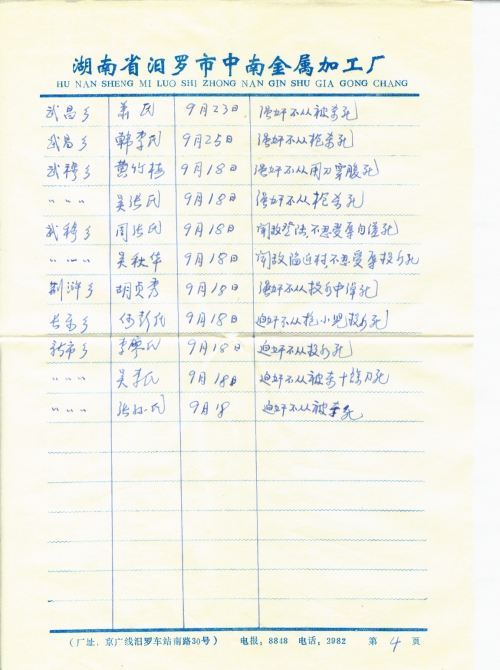 湖南省汨罗市中南金属加工厂
HU NAN SHENG MI LUO SHI ZHONG NAN GIN SHU GIA GONG CHANG
武昌乡 萧氏 9月23日 强奸不从被杀死
武昌乡 韩李氏 9月25日 强奸不从枪杀死
武穆乡 黄竹梅 9月18日 强奸不从用刀穿腹死
〃〃〃 吴张氏 9月18日 强奸不从枪杀死
武穆乡 周张氏 9月18日 闻敌登陆,不忍受辱自缢死
〃〃〃 吴秋华 9月18日 闻敌临近村不忍受辱投水死
荆浒乡 胡贞秀 9月18日 强奸不从投水中淹死
长乐乡 伍彭氏 9月18日 迫奸不从抢小儿投水死
新市乡 李廖氏 9月18日 迫奸不从投水死
〃〃〃 吴李氏 9月18日 迫奸不从被杀十余刀死
〃〃〃 9月18 迫奸不从被杀死
(厂址:京广线汨罗车站南路30号) 电报:8848 电话:2982 第 4 页